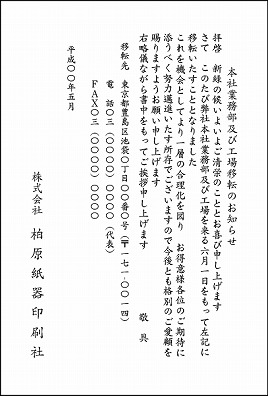 本社業務部及び工場移転のお知らせ
拝啓 新緑の候いよいよご清栄のこととお喜び申し上げます
さて このたび弊社本社業務部及び工場を来る六月一日をもって左記に
移転いたすこととなりました
これを機会としてより一層の合理化を図り お得意様各位のご期待に
添うべく努力邁進いたす所存でございますので今後とも格別のご愛顧を
賜りますようお願い申し上げます
右略儀ながら書中をもってご挨拶申し上げます
敬具
移転先 東京都豊島区池袋〇丁目〇〇番〇号(〒一七一-〇〇一四)
電話〇三(〇〇〇〇)〇〇〇〇(代表)
FAX〇三(〇〇〇〇)〇〇〇〇
平成〇〇年五月
株式会社 柏原紙器印刷社